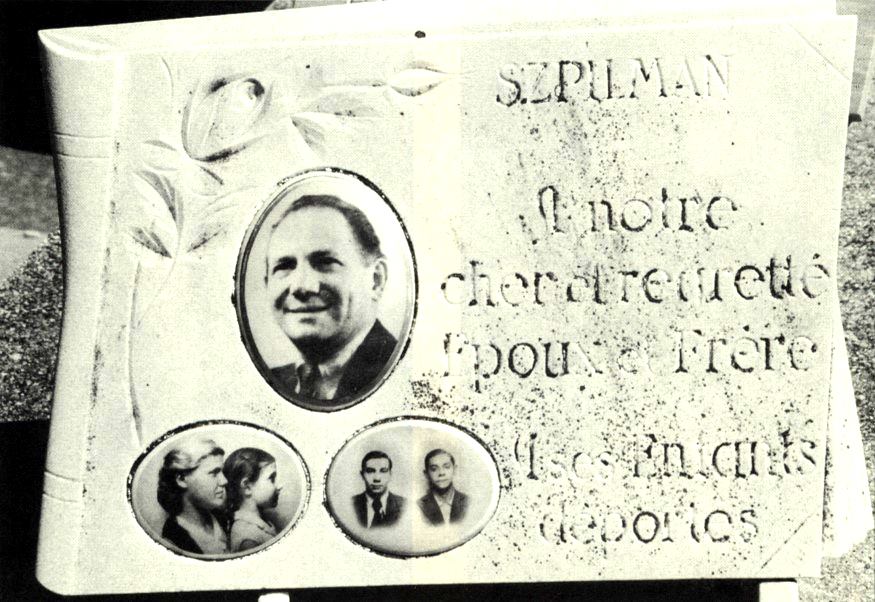 SZPILMAN
A notre
cher et regretté
Epoux et Frère
A ses Enfants
déportés